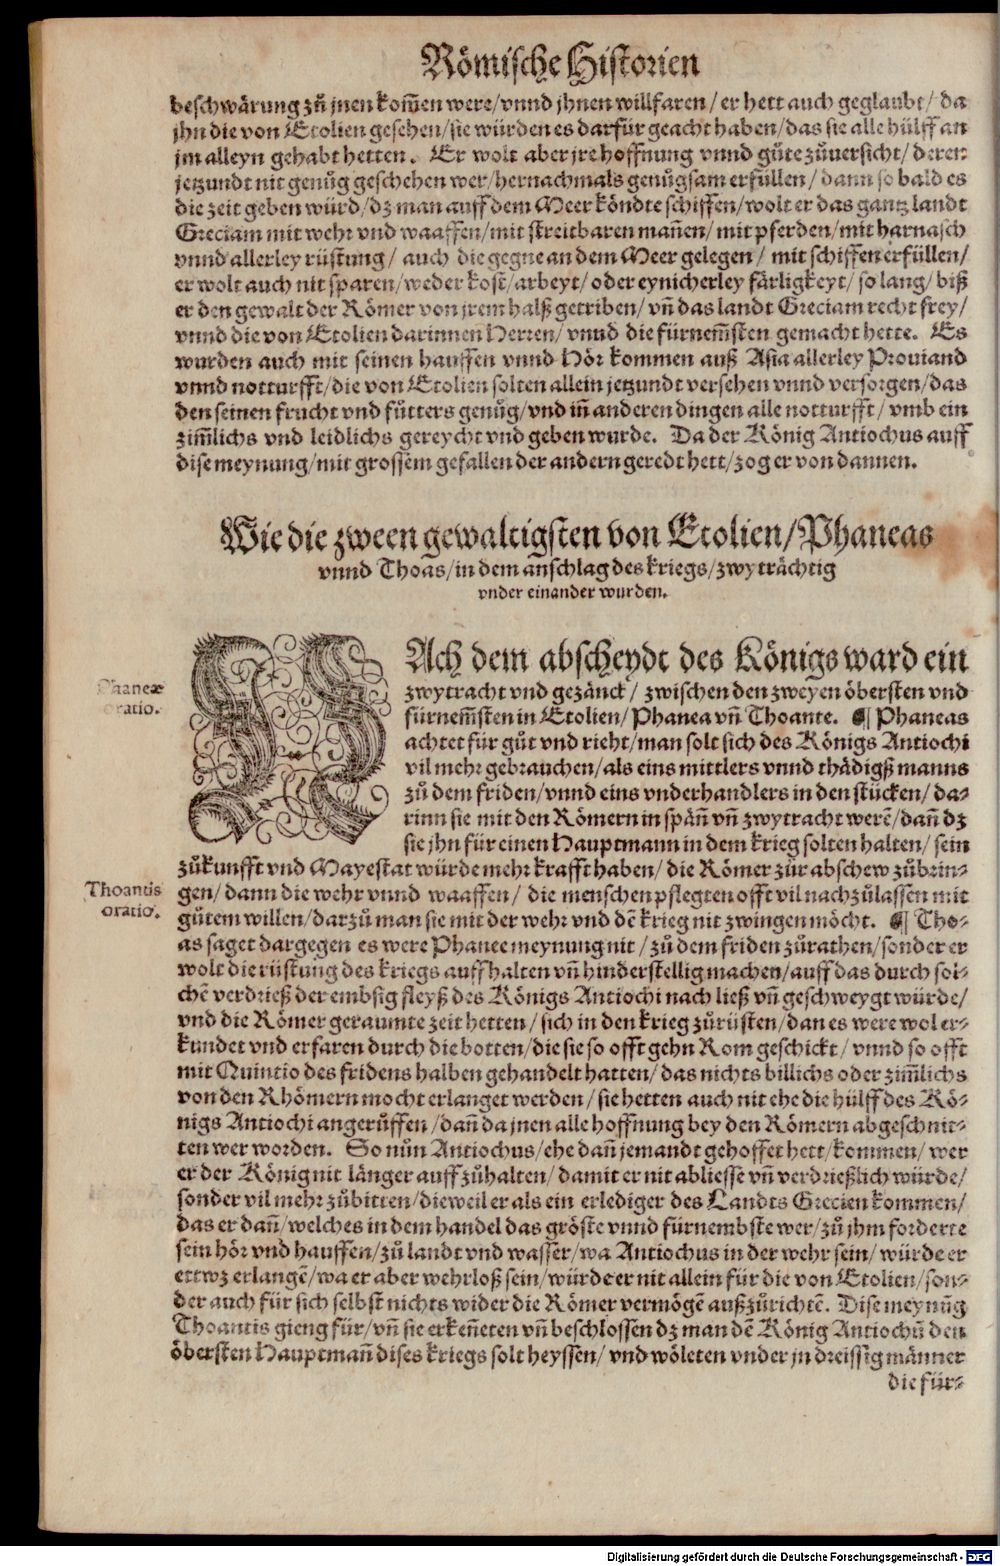 Römische Historien
beschwärung zů jnen kom̃en were/ vnnd jhnen willfaren/ er hett auch geglaubt/ da
jhn die von Etolien gesehen/ sie würden es darfür geacht haben/ das sie alle hülff an
jm alleyn gehabt hetten. Er wolt aber jre hoffnung vnnd gůte zůuersicht/ deren
jetzundt nit genůg geschehen wer/ hernachmals genůgsam erfüllen/ dann so bald es
die zeit geben würd/ dz man auff dem Meer köndte schiffen/ wolt er das gantz landt
Greciam mit wehr vnd waaffen/ mit streitbaren mañen/ mit pferden/ mit harnasch
vnnd allerley rüstung/ auch die gegne an dem Meer gelegen/ mit schiffen erfüllen/
er wolt auch nit sparen/ weder kost/ arbeyt/ oder eynicherley färligkeyt/ so lang/ biß
er den gewalt der Römer von jrem halß getriben/ vñ das landt Greciam recht frey/
vnnd die von Etolien darinnen Herren/ vnnd die fürnem̃sten gemacht hette. Es
wurden auch mit seinen hauffen vnnd Hör kommen auß Asia allerley Prouiand
vnnd notturfft/ die von Etolien solten allein jetzundt versehen vnnd versorgen/ das
den seinen frucht vnd fůtters genůg/ vnd iñ anderen dingen alle notturfft/ vmb ein
zim̃lichs vnd leidlichs gereycht vnd geben wurde. Da der König Antiochus auff
dise meynung/ mit grossem gefallen der andern geredt hett/ zog er von dannen.
Wie die zween gewaltigsten von Etolien/ Phaneas
vnnd Thoas/ in dem anschlag des kriegs/ zwyträchtig
vnder einander wurden.
NAch dem abscheydt des Königs ward ein
zwytracht vnd gezänck/ zwischen den zweyen öbersten vnd
fürnem̃sten in Etolien/ Phanea vñ Thoante. ¶ Phaneas
achtet für gůt vnd rieht/ man solt sich des Königs Antiochi
vil mehr gebrauchen/ als eins mittlers vnnd thädigß manns
zů dem friden/ vnnd eins vnderhandlers in den stücken/ da-
rinn sie mit den Römern in späñ vñ zwytracht werē/ dañ dz
sie jhn für einen Hauptmann in dem krieg solten halten/ sein
zůkunfft vnd Mayestat würde mehr krafft haben/ die Römer zůr abschew zůbrin-
gen/ dann die wehr vnnd waaffen/ die menschen pflegten offt vil nachzůlassen mit
gůtem willen/ darzů man sie mit der wehr vnd dē krieg nit zwingen möcht. ¶ Tho-
as saget dargegen es were Phanee meynung nit/ zů dem friden zůrathen/ sonder er
wolt die rüstung des kriegs auffhalten vñ hinderstellig machen/ auff das durch sol-
chē verdrieß der embsig fleyß des Königs Antiochi nach ließ vñ geschweygt würde/
vnd die Römer geraumte zeit hetten/ sich in den krieg zůrüsten/ dan es were wol er-
kundet vnd erfaren durch die botten/ die sie so offt gehn Rom geschickt/ vnnd so offt
mit Quintio des fridens halben gehandelt hatten/ das nichts billichs oder zim̃lichs
von den Rhömern mocht erlanget werden/ sie hetten auch nit ehe die hülff des Kö-
nigs Antiochi angerůffen/ dañ da jnen alle hoffnung bey den Römern abgeschnit-
ten wer worden. So nůn Antiochus/ ehe dañ jemandt gehoffet hett/ kommen/ wer
er der König nit länger auffzůhalten/ damit er nit abliesse vñ verdrießlich würde/
sonder vil mehr zůbitten/ dieweil er als ein erlediger des Landts Grecien kommen/
das er dañ/ welches in dem handel das gröste vnnd fürnembste wer/ zů jhm forderte
sein hör vnd hauffen/ zů landt vnd wasser/ wa Antiochus in der wehr sein/ würde er
ettwz erlangē/ wa er aber wehrloß sein/ würde er nit allein für die von Etolien/ son-
der auch für sich selbst nichts wider die Römer vermögē außzůrichtē. Dise meynũg
Thoantis gieng für/ vñ sie erkeñeten vñ beschlossen dz man dē König Antiochũ den
öbersten Hauptmañ dises kriegs solt heyssen/ vnd wöleten vnder jn dreissig männer
die für-
Phaneæ
oratio.
Thoantis
oratio.
Digitalisierung gefördert durch die Deutsche Forschungsgemeinschaft - DFG